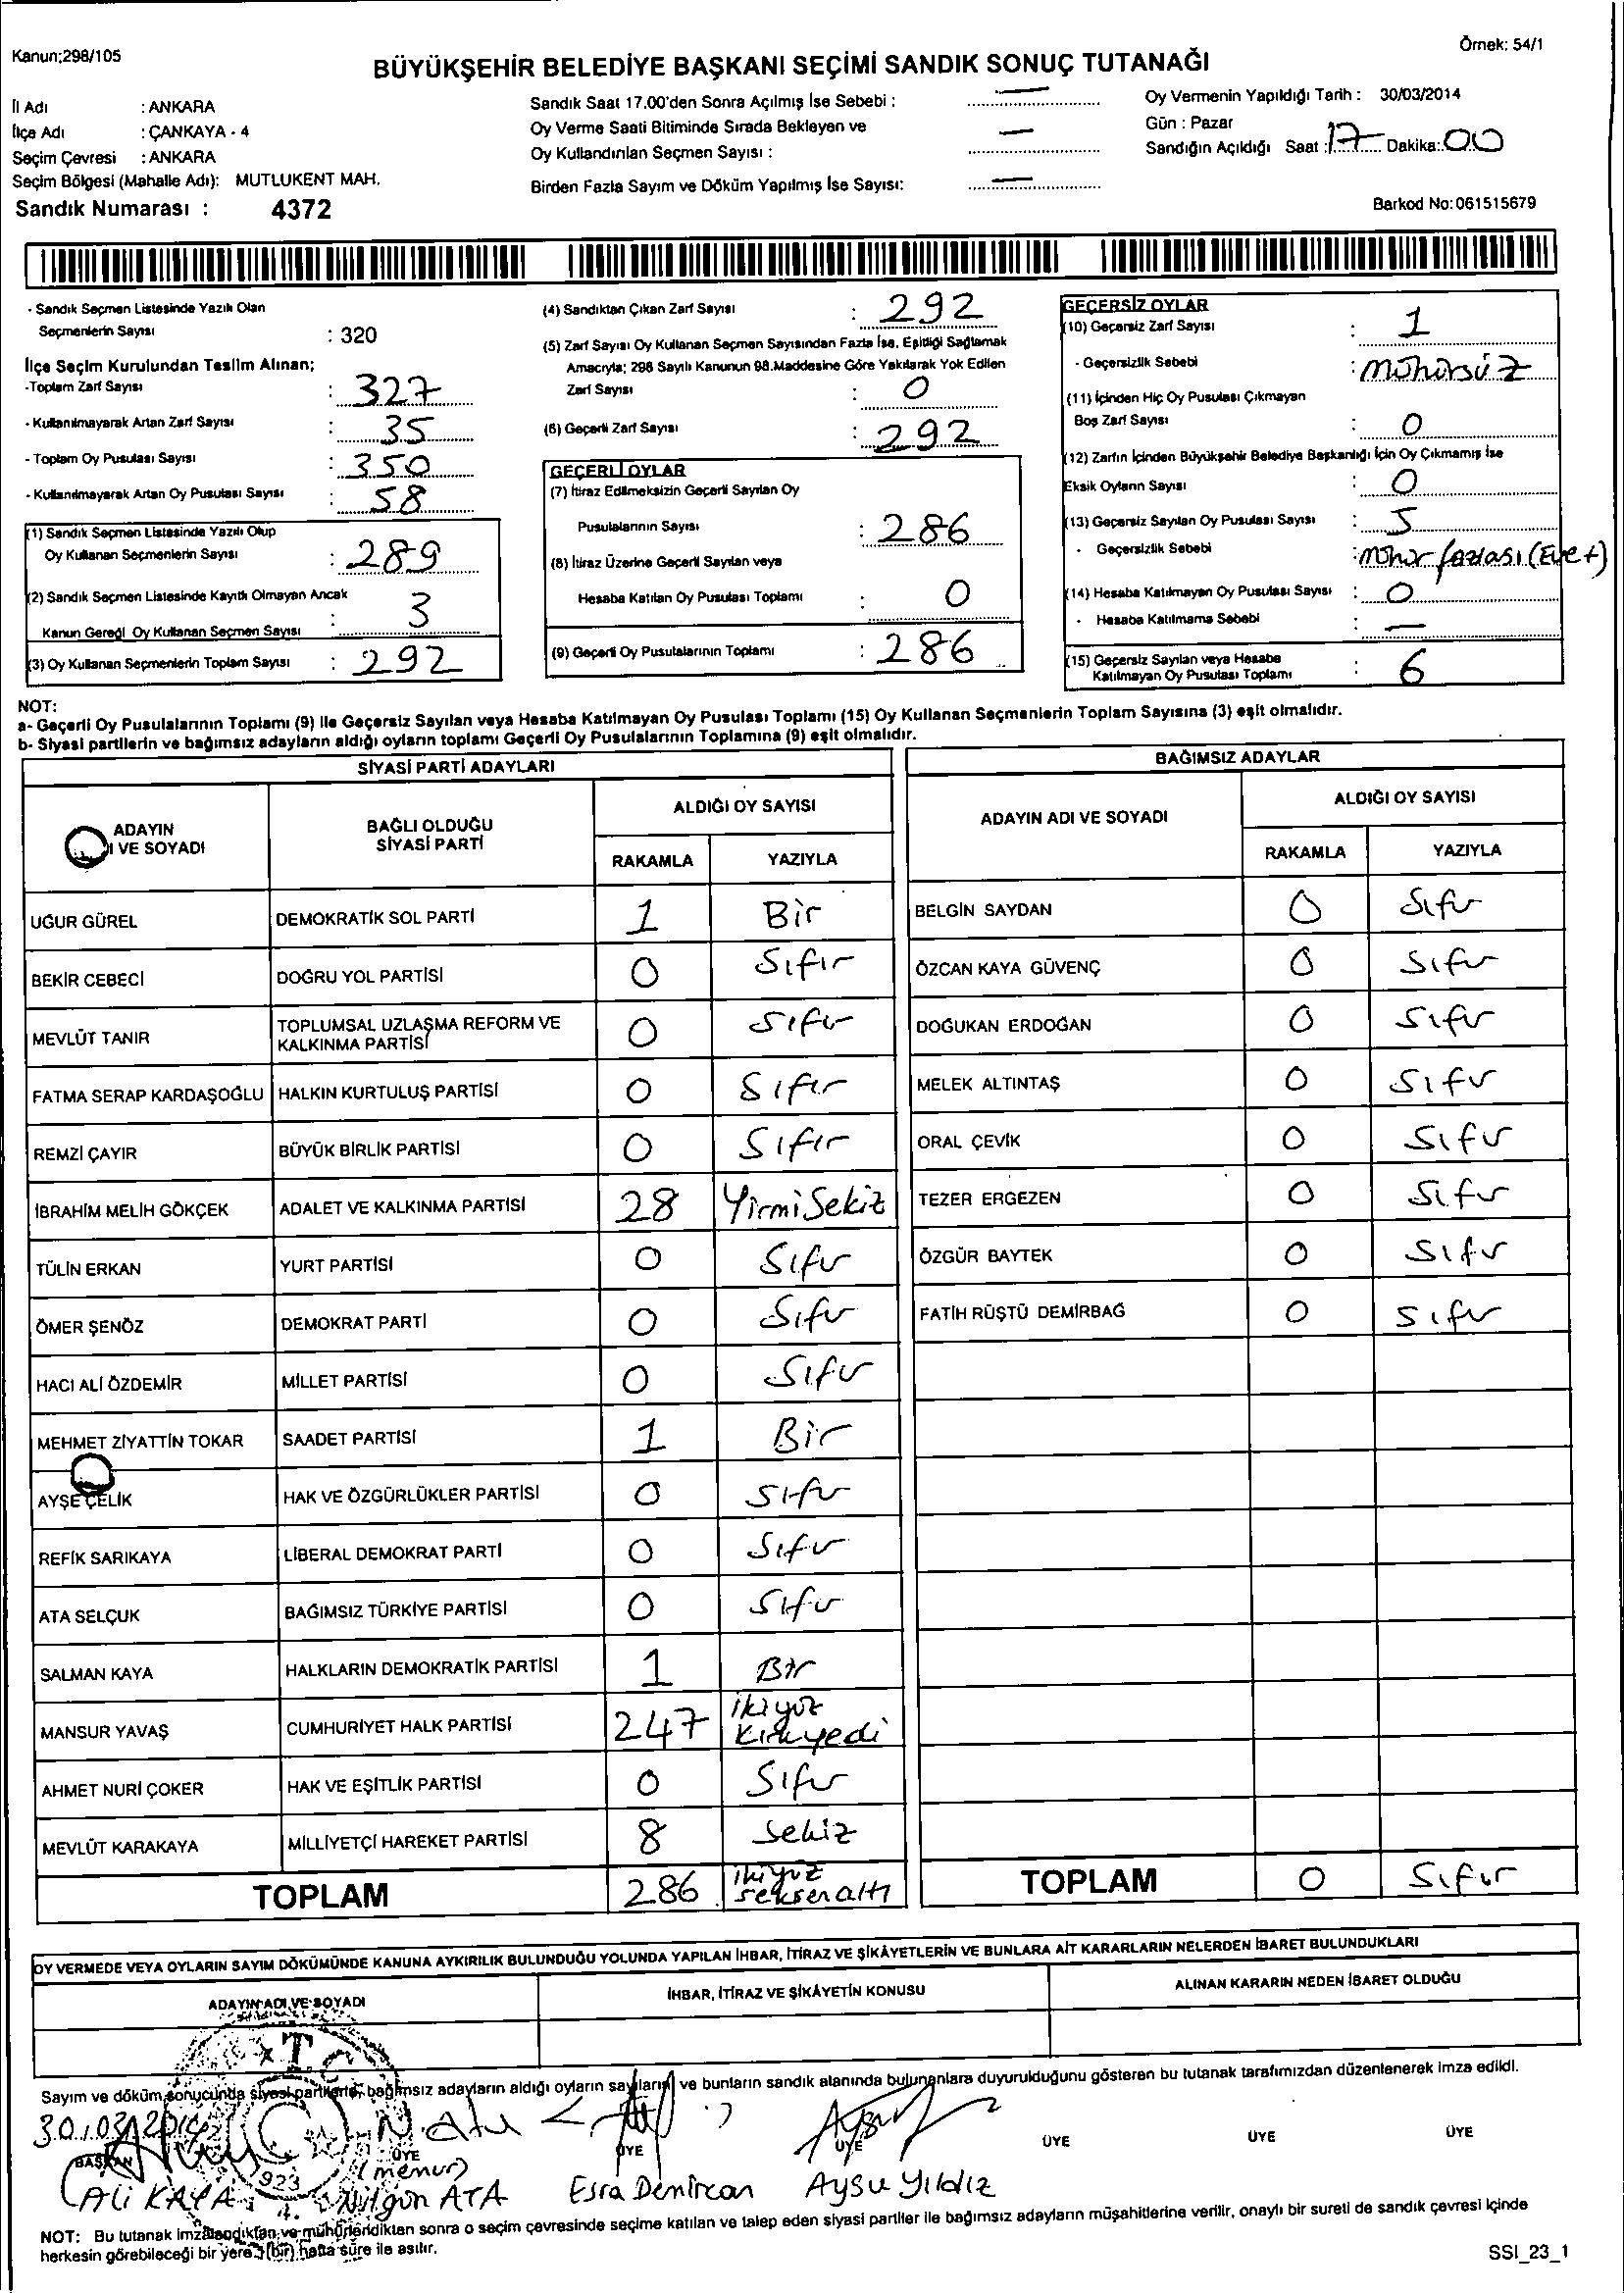 Kanun:298/105
Örnek: 54/1
BÜYÜKŞEHİR BELEDİYE BAŞKANI SEÇİMİ SANDIK SONUÇ TUTANAĞI
İl Adı : ANKARA
İlçe Adı : ÇANKAYA - 4
Seçim Çevresi : ANKARA
Seçim Bölgesi (Mahalle Adı): MUTLUKENT MAH.
Sandık Numarası : 4372
Sandık Saat 17.00'den Sonra Açılmış İse Sebebi : —
Oy Verme Saati Bitiminde Sırada Bekleyen ve
Oy Kullandırılan Seçmen Sayısı : —
Birden Fazla Sayım ve Döküm Yapılmış İse Sayısı: —
Oy Vermenin Yapıldığı Tarih : 30/03/2014
Gün : Pazar
Sandığın Açıldığı Saat : 17 Dakika: 00
Barkod No:061515679
- Sandık Seçmen Listesinde Yazılı Olan
Seçmenlerin Sayısı : 320
İlçe Seçim Kurulundan Teslim Alınan;
-Toplam Zarf Sayısı : 327
- Kullanılmayarak Artan Zarf Sayısı : 35
- Toplam Oy Pusulası Sayısı : 350
- Kullanılmayarak Artan Oy Pusulası Sayısı : 58
(1) Sandık Seçmen Listesinde Yazılı Olup
Oy Kullanan Seçmenlerin Sayısı : 289
(2) Sandık Seçmen Listesinde Kayıtlı Olmayan Ancak
Kanun Gereği Oy Kullanan Seçmen Sayısı : 3
(3) Oy Kullanan Seçmenlerin Toplam Sayısı : 292
(4) Sandıktan Çıkan Zarf Sayısı : 292
(5) Zarf Sayısı Oy Kullanan Seçmen Sayısından Fazla İse, Eşitliği Sağlamak
Amacıyla; 298 Sayılı Kanunun 98.Maddesine Göre Yakılarak Yok Edilen
Zarf Sayısı : 0
(6) Geçerli Zarf Sayısı : 292
GEÇERLİ OYLAR
(7) İtiraz Edilmeksizin Geçerli Sayılan Oy
Pusulalarının Sayısı : 286
(8) İtiraz Üzerine Geçerli Sayılan veya
Hesaba Katılan Oy Pusulası Toplamı : 0
(9) Geçerli Oy Pusulalarının Toplamı : 286
GEÇERSİZ OYLAR
(10) Geçersiz Zarf Sayısı : 1
- Geçersizlik Sebebi : mühürsüz
(11) İçinden Hiç Oy Pusulası Çıkmayan
Boş Zarf Sayısı : 0
(12) Zarfın İçinden Büyükşehir Belediye Başkanlığı İçin Oy Çıkmamış İse
Eksik Oyların Sayısı : 0
(13) Geçersiz Sayılan Oy Pusulası Sayısı : 5
- Geçersizlik Sebebi : mühür fazlası (Evet)
(14) Hesaba Katılmayan Oy Pusulası Sayısı : 0
- Hesaba Katılmama Sebebi : —
(15) Geçersiz Sayılan veya Hesaba
Katılmayan Oy Pusulası Toplamı : 6
NOT:
a- Geçerli Oy Pusulalarının Toplamı (9) ile Geçersiz Sayılan veya Hesaba Katılmayan Oy Pusulası Toplamı (15) Oy Kullanan Seçmenlerin Toplam Sayısına (3) eşit olmalıdır.
b- Siyasi partilerin ve bağımsız adayların aldığı oyların toplamı Geçerli Oy Pusulalarının Toplamına (9) eşit olmalıdır.
SİYASİ PARTİ ADAYLARI
ADAYIN
I VE SOYADI
BAĞLI OLDUĞU
SİYASİ PARTİ
ALDIĞI OY SAYISI
RAKAMLA YAZIYLA
UĞUR GÜREL DEMOKRATİK SOL PARTİ 1 Bir
BEKİR CEBECİ DOĞRU YOL PARTİSİ 0 Sıfır
MEVLÜT TANIR TOPLUMSAL UZLAŞMA REFORM VE
KALKINMA PARTİSİ 0 Sıfır
FATMA SERAP KARDAŞOĞLU HALKIN KURTULUŞ PARTİSİ 0 Sıfır
REMZİ ÇAYIR BÜYÜK BİRLİK PARTİSİ 0 Sıfır
İBRAHİM MELİH GÖKÇEK ADALET VE KALKINMA PARTİSİ 28 Yirmi Sekiz
TÜLİN ERKAN YURT PARTİSİ 0 Sıfır
ÖMER ŞENÖZ DEMOKRAT PARTİ 0 Sıfır
HACI ALİ ÖZDEMİR MİLLET PARTİSİ 0 Sıfır
MEHMET ZİYATTİN TOKAR SAADET PARTİSİ 1 Bir
AYŞE ÇELİK HAK VE ÖZGÜRLÜKLER PARTİSİ 0 Sıfır
REFİK SARIKAYA LİBERAL DEMOKRAT PARTİ 0 Sıfır
ATA SELÇUK BAĞIMSIZ TÜRKİYE PARTİSİ 0 Sıfır
SALMAN KAYA HALKLARIN DEMOKRATİK PARTİSİ 1 Bir
MANSUR YAVAŞ CUMHURİYET HALK PARTİSİ 247 ikiyüz
kırkyedi
AHMET NURİ ÇOKER HAK VE EŞİTLİK PARTİSİ 0 Sıfır
MEVLÜT KARAKAYA MİLLİYETÇİ HAREKET PARTİSİ 8 Sekiz
TOPLAM 286 ikiyüz
seksenaltı
BAĞIMSIZ ADAYLAR
ADAYIN ADI VE SOYADI
ALDIĞI OY SAYISI
RAKAMLA YAZIYLA
BELGİN SAYDAN 0 Sıfır
ÖZCAN KAYA GÜVENÇ 0 Sıfır
DOĞUKAN ERDOĞAN 0 Sıfır
MELEK ALTINTAŞ 0 Sıfır
ORAL ÇEVİK 0 Sıfır
TEZER ERGEZEN 0 Sıfır
ÖZGÜR BAYTEK 0 Sıfır
FATİH RÜŞTÜ DEMİRBAĞ 0 Sıfır
TOPLAM 0 Sıfır
OY VERMEDE VEYA OYLARIN SAYIM DÖKÜMÜNDE KANUNA AYKIRILIK BULUNDUĞU YOLUNDA YAPILAN İHBAR, İTİRAZ VE ŞİKÂYETLERİN VE BUNLARA AİT KARARLARIN NELERDEN İBARET BULUNDUKLARI
ADAYIN ADI VE SOYADI İHBAR, İTİRAZ VE ŞİKÂYETİN KONUSU ALINAN KARARIN NEDEN İBARET OLDUĞU
T.C.
Sayım ve döküm sonucunda siyasi partilerle, bağımsız adayların aldığı oyların sayıların ve bunların sandık alanında bulunanlara duyurulduğunu gösteren bu tutanak tarafımızdan düzenlenerek imza edildi.
30.03.2014
BAŞKAN ÜYE ÜYE ÜYE ÜYE ÜYE ÜYE
(memur)
Ali KAYA Nilgün ATA Esra Demircan Aysu Yıldız
923
NOT: Bu tutanak imzalandıktan ve mühürlendikten sonra o seçim çevresinde seçime katılan ve talep eden siyasi partiler ile bağımsız adayların müşahitlerine verilir, onaylı bir sureti de sandık çevresi içinde
herkesin görebileceği bir yere 1 (bir) hafta süre ile asılır.
SSI_23_1